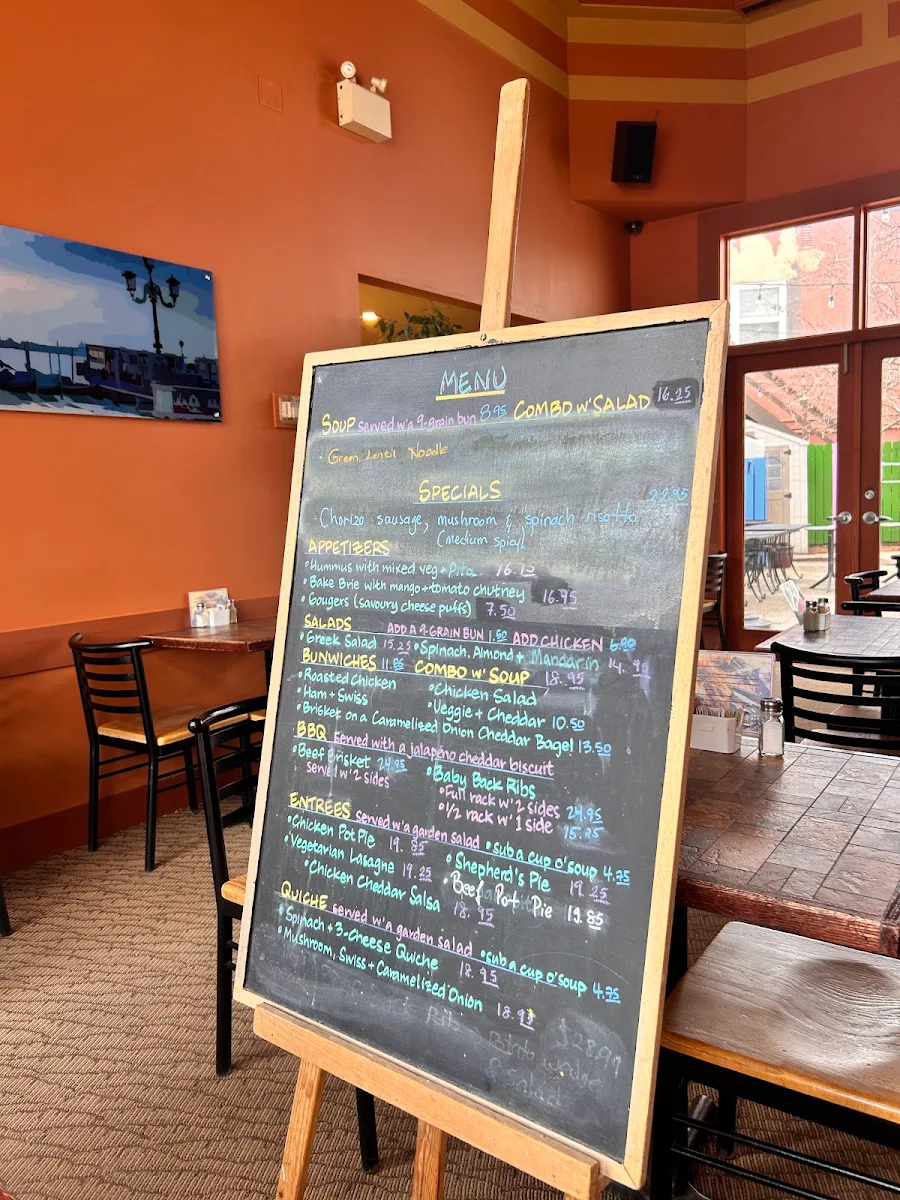 MENU
SOUP served w'a 9-grain bun 8.95 COMBO w' SALAD 16.25
• Green Lentil Noodle
SPECIALS
22.95
• Chorizo sausage, mushroom & spinach risotto
(medium spicy)
APPETIZERS
• Hummus with mixed veg + Pita 16.75
• Bake Brie with mango + tomato chutney 16.95
• Gougers (savoury cheese puffs) 7.50
SALADS ADD A 9-GRAIN BUN 1.50 ADD CHICKEN 6.90
• Greek Salad 15.25 • Spinach, Almond + Mandarin 14.95
BUNWICHES 11.85 COMBO w' SOUP 18.95
• Roasted Chicken • Chicken Salad
• Ham + Swiss • Veggie + Cheddar 10.50
• Brisket on a Caramelized Onion Cheddar Bagel 13.50
BBQ served with a jalapeño cheddar biscuit
• Beef Brisket 24.95 • Baby Back Ribs
served w' 2 sides • Full rack w' 2 sides 24.95
• 1/2 rack w' 1 side 15.25
ENTRÉES served w'a garden salad • sub a cup o' soup 4.75
• Chicken Pot Pie 19.85 • Shepherd's Pie 19.25
• Vegetarian Lasagne 19.25 • Beef Pot Pie 19.85
• Chicken Cheddar Salsa 18.95
QUICHE served w'a garden salad • sub a cup o' soup 4.75
• Spinach + 3-Cheese Quiche 18.95
• Mushroom, Swiss + Caramelized Onion 18.95